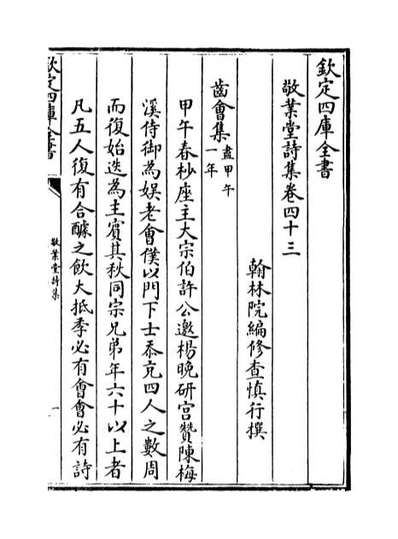 欽定四庫全書
敬業堂詩集卷四十三
翰林院編修查慎行撰
齒會集盡甲午一年
甲午春杪座主大宗伯許公邀楊晚研宫贊陳梅
溪侍御為娱老會僕以門下士忝充四人之數周
而復始迭為主賓其秋同宗兄弟年六十以上者
凡五人復有合醵之飲大抵季必有會會必有詩
欽定四庫全書
敬業堂詩集
一